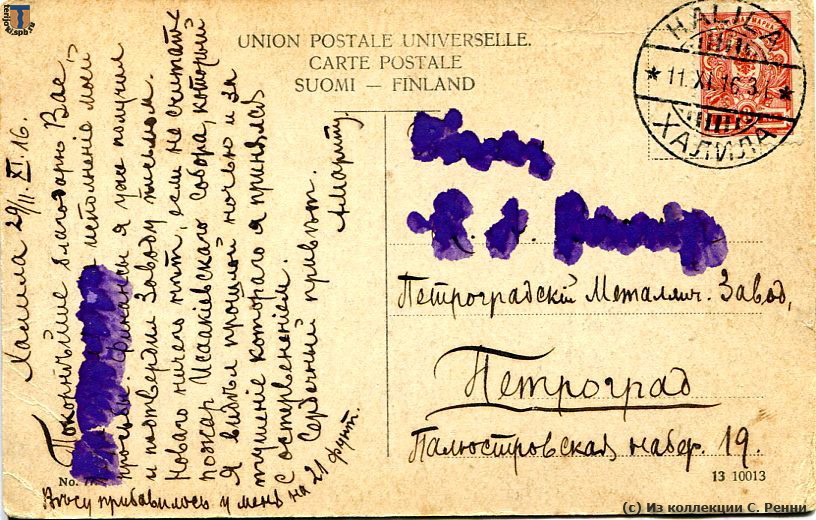 terijoki.spb.ru
UNION POSTALE UNIVERSELLE.
CARTE POSTALE
SUOMI — FINLAND
HALILA
11.XI.16.
ХАЛИЛА
Халила 29/11. XI. 16.
Покорнѣйше благодарю Вас,
исполненiе моей
просьбы. Финансы я уже получил
и подтвердил Заводу письмом.
Новаго ничего нѣт, если не считать
пожар Исаакiевскаго Собора, который
я видѣл прошлой ночью и за
тушенiе котораго я принялся
с остервененiем.
Сердечный привѣт.
Вѣсу прибавилось у меня на 21 фунт.
Петроградскiй Металлич. Завод,
Петроград
Палюстровская набер. 19.
No.
13 10013
(c) Из коллекции С. Ренни